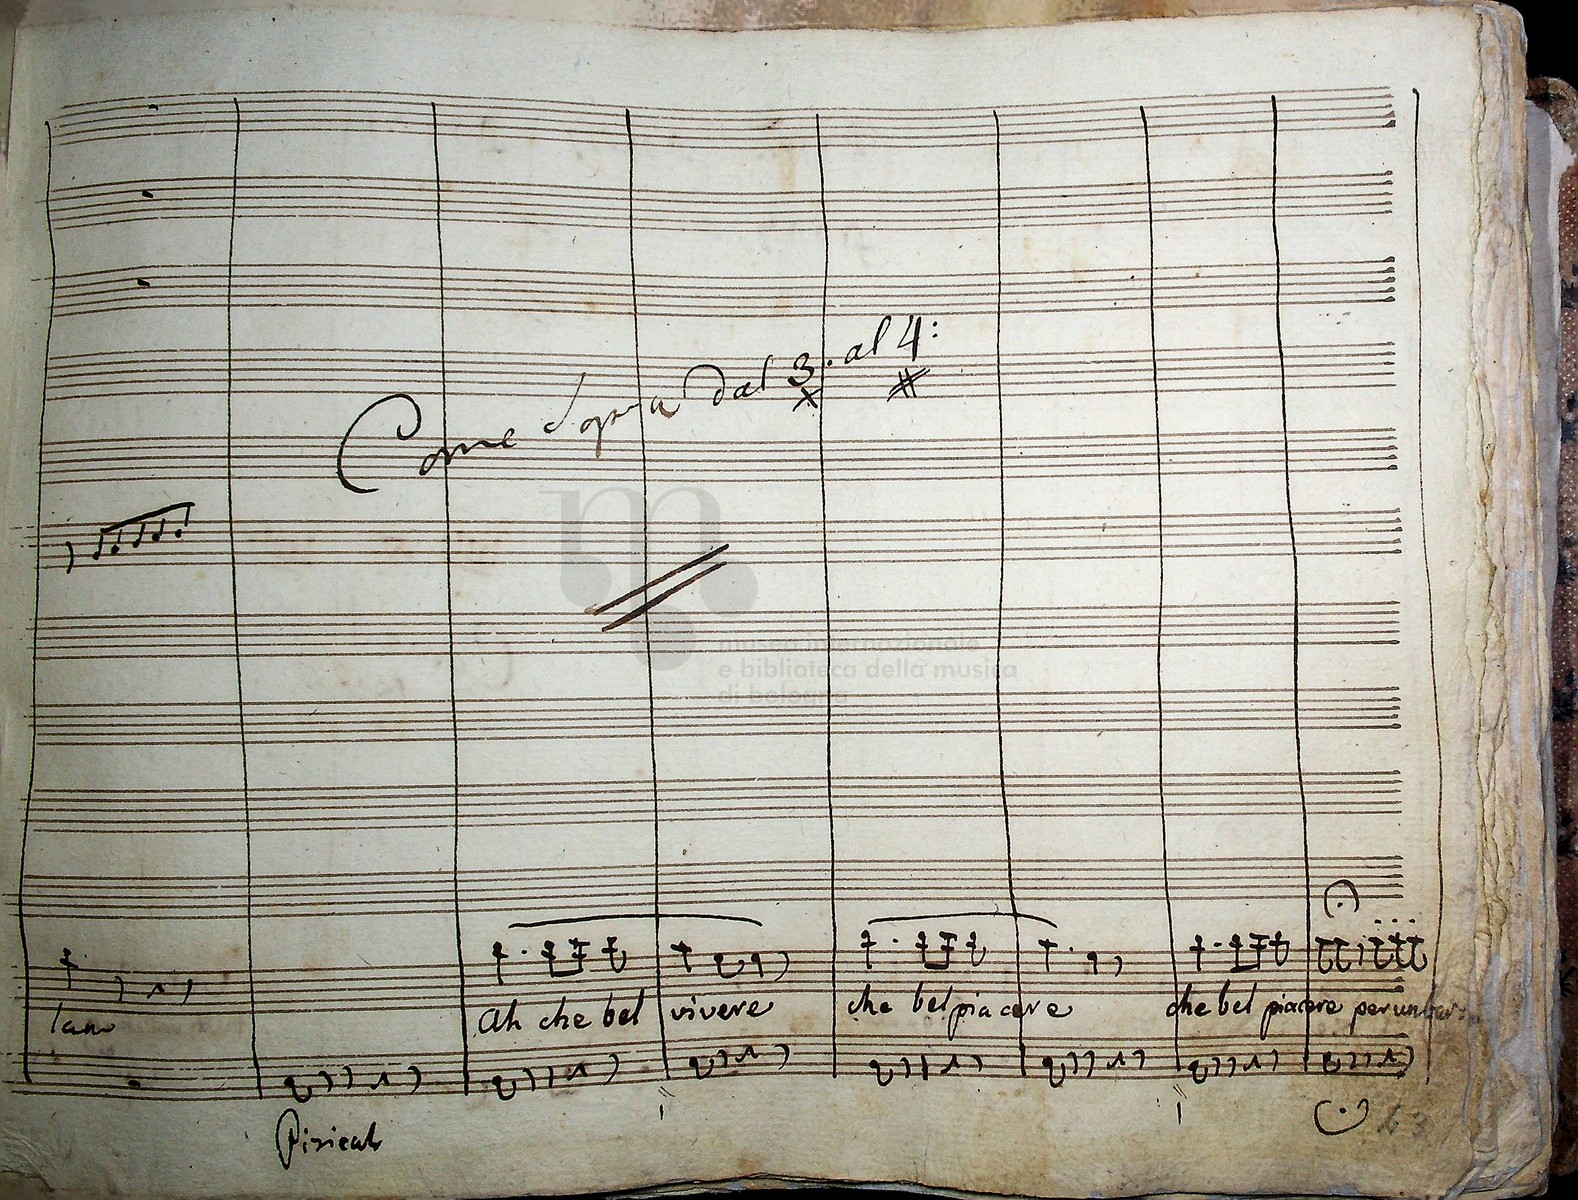 Come Sopra dal 3. al 4:
museo internazionale
e biblioteca della musica
di bologna
Ah che bel vivere che bel piacere che bel piacere per un bar